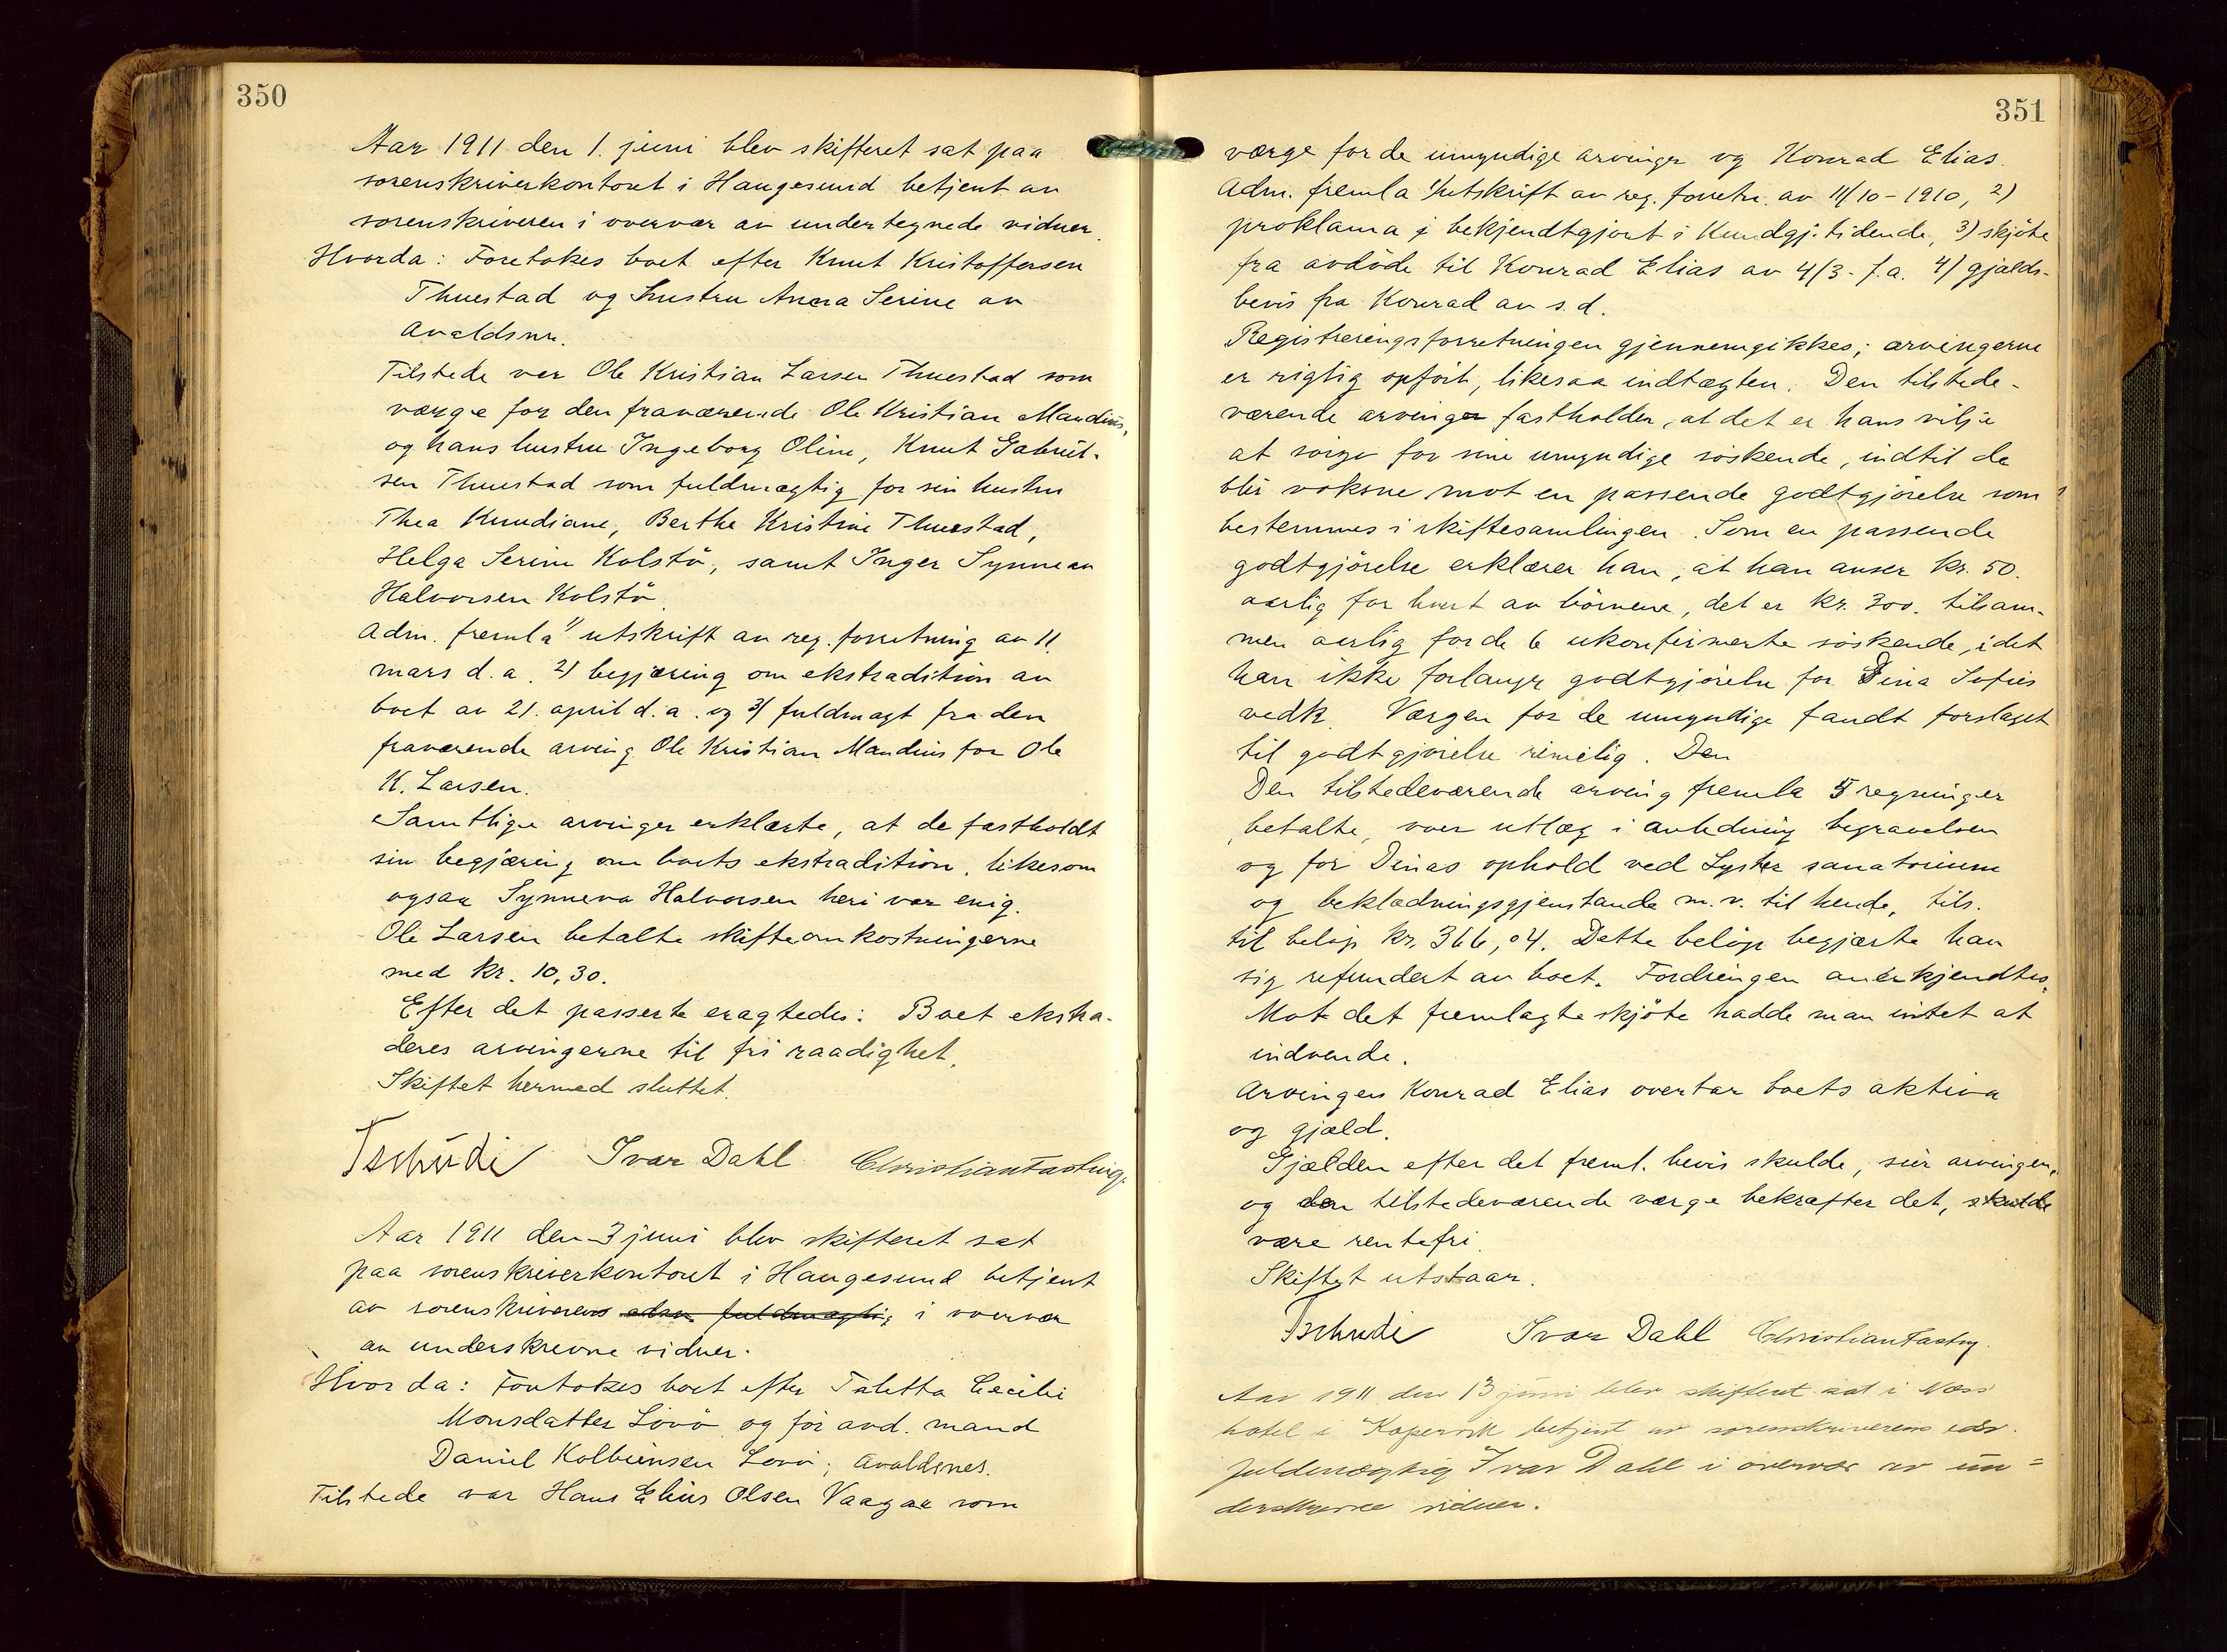 350
Aar 1911 den 1. juni blev skifteret sat paa
sorenskriverkontoret i Haugesund betjent av
sorenskriveren i overvær av undertegnede vidner.
Hvorda: Foretokes boet efter Knut Kristoffersen
Thuestad og hustru Anna Serine av
Avaldsnes.
Tilstede var Ole Kristian Larsen Thuestad som
værge for den fraværende Ole Kristian Maudius,
og hans hustru Ingeborg Oline, Knut Gabriel-
sen Thuestad som fuldmægtig for sin hustru
Thea Knudiane, Berthe Kristine Thuestad,
Helga Serine Kolstö, samt Inger Synneva
Halvorsen Kolstö.
Adm. fremla 1) utskrift av reg. forretning av 11.
mars d.a. 2) begjæring om ekstradition av
boet av 21. april d.a. og 3) fuldmagt fra den
fraværende arving Ole Kristian Maudius for Ole
K. Larsen.
Samtlige arvinger erklærte, at de fastholdt
sin begjæring om boets ekstradition, likesom
ogsaa Synneva Halvorsen heri var enig.
Ole Larsen betalte skifteomkostningerne
med kr. 10,30.
Efter det passerte eragtedes: Boet ekstra-
deres arvingerne til fri raadighet.
Skiftet hermed sluttet.
Tschudi Ivar Dahl Christian Fasting.
Aar 1911 den 3 juni blev skifteret sat
paa sorenskriverkontoret i Haugesund betjent
av sorenskriverens edsv. fuldmægtig i overvær
av underskrevne vidner.
Hvorda: Foretokes boet efter Taletta Cecilie
Monsdatter Lövö og för avd. mand
Daniel Kolbeinsen Lövö, Avaldsnes.
Tilstede var Hans Elius Olsen Vaage som
351
værge for de umyndige arvinger og Konrad Elias.
Adm. fremla 1) utskrift av reg. forretn. av 11/10-1910, 2)
proklama i bekjendtgjort i Kundgj. tidende, 3) skjöte
fra avdöde til Konrad Elias av 4/3- f.a. 4) gjælds-
bevis fra Konrad av s.d.
Registreringsforretningen gjennemgikkes; arvingerne
er rigtig opfört, likesaa indtægten. Den tilstede-
værende arving fastholder, at det er hans vilje
at sörge for sine umyndige söskende, indtil de
blir voksne mot en passende godtgjörelse som
bestemmes i skiftesamlingen. Som en passende
godtgjörelse erklærer han, at han anser kr. 50.
aarlig for hvert av börnene, det er kr. 300. tilsam-
men aarlig for de 6 ukonfirmerte söskende, idet
han ikke forlanger godtgjörelse for Dina Sofies
vedk. Værgen for de umyndige fandt forslaget
til godtgjörelse rimelig. Den
Den tilstedeværende arving fremla 5 regninger
betalte, over utlæg i anledning begravelsen
og for Dinas ophold ved Lyster sanatorium
og beklædningsgjenstande m.v. til hende, tils.
til belöp kr. 366,04. Dette belöp begjærte han
sig refundert av boet. Fordringen anerkjendtes.
Mot det fremlagte skjöte hadde man intet at
indvende.
Arvingen Konrad Elias overtar boets aktiva
og gjæld.
Gjælden efter det freml. bevis skulde, sier arvingen,
og den tilstedeværende værge bekræfter det, skulde
være rentefri.
Skiftet utstaar.
Tschudi Ivar Dahl Christian Fasting.
Aar 1911 den 13 juni blev skifteret sat i Næss
hotel i Kopervik betjent av sorenskriverens edsv.
fuldmægtig Ivar Dahl i overvær av un=
derskrevne vidner.